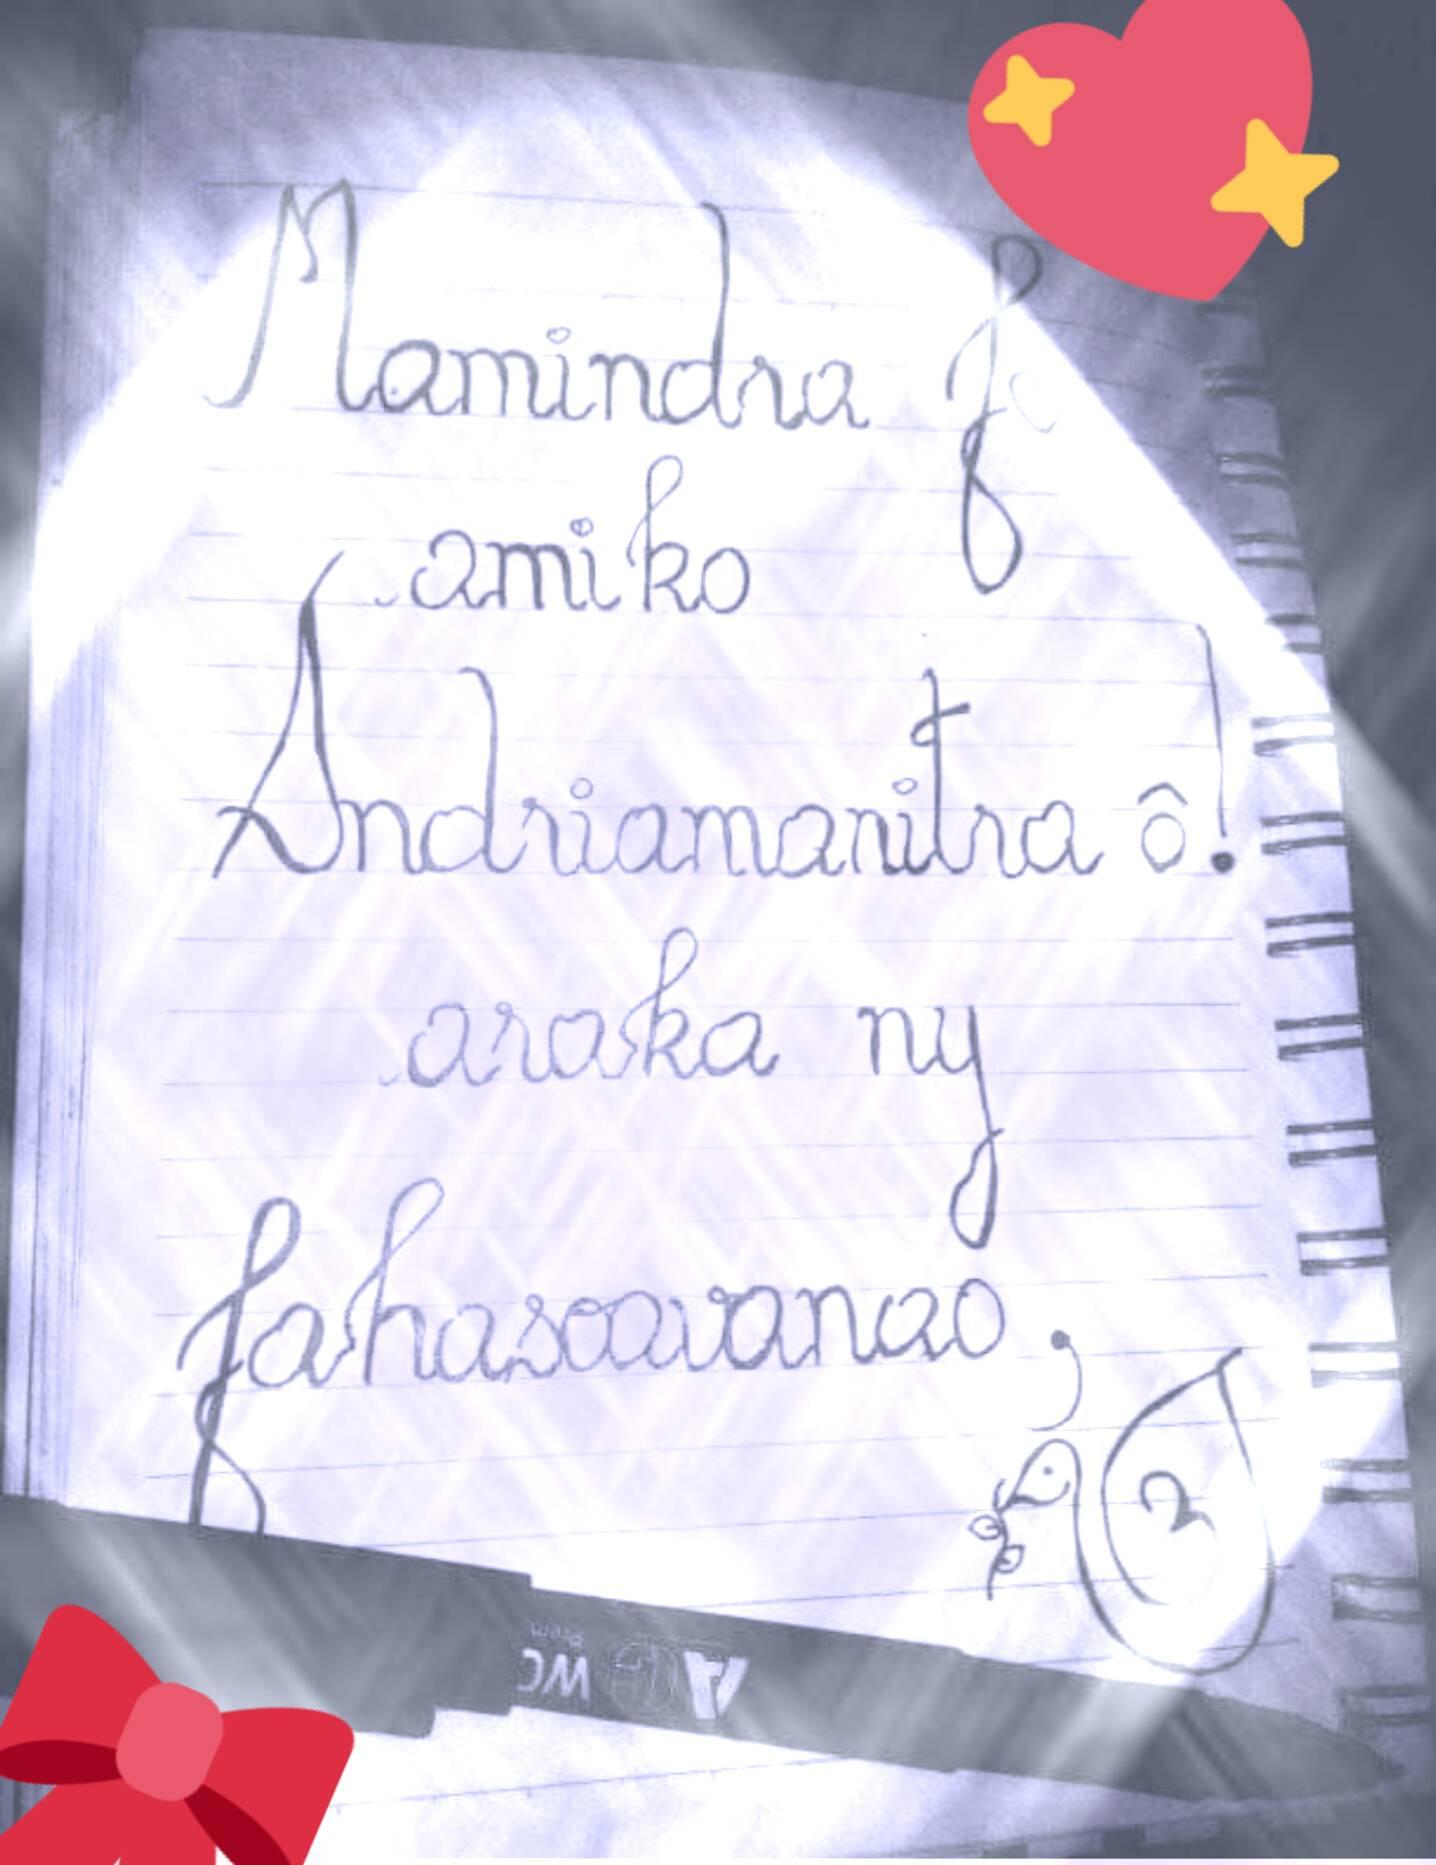 Mamindra fo
amiko
Andriamanitra ô!
araka ny
fahasoavanao ;
WC